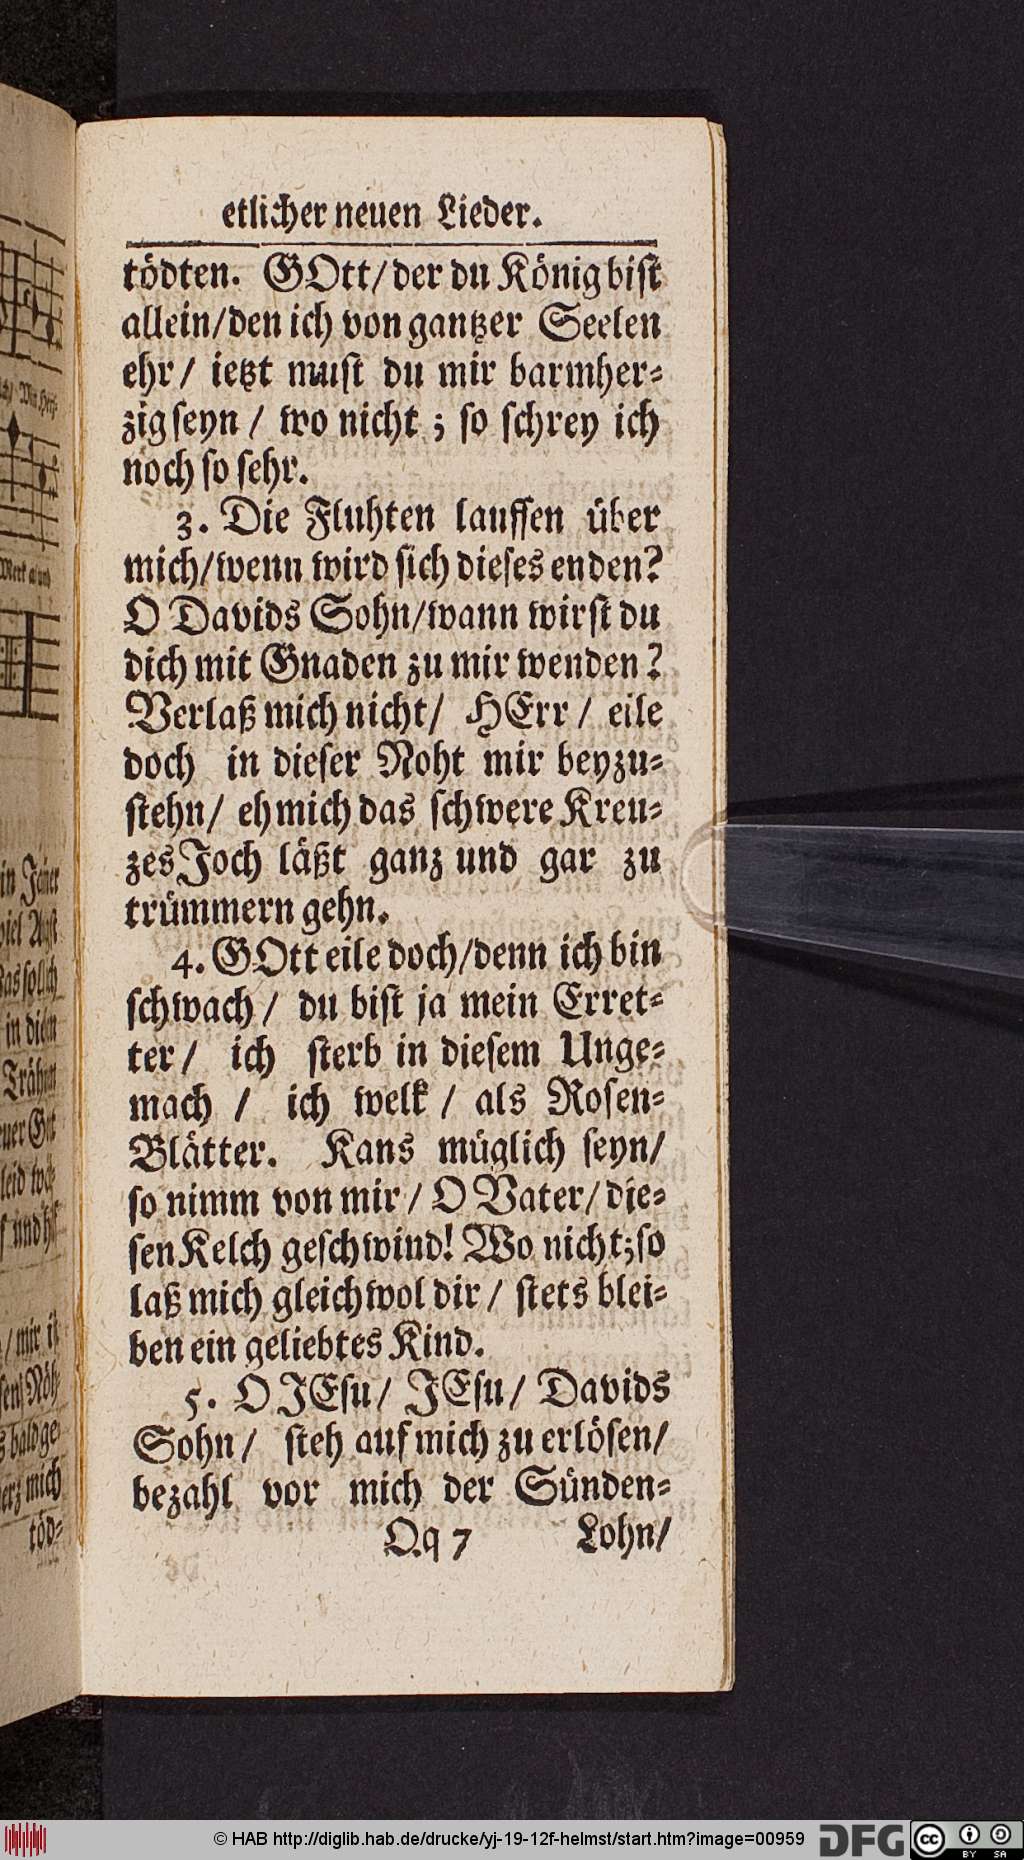 etlicher neuen Lieder.
tödten. GOtt/ der du König bist
allein/ den ich von gantzer Seelen
ehr/ ietzt must du mir barmher-
zig seyn/ wo nicht; so schrey ich
noch so sehr.
3. Die Fluhten lauffen über
mich/ wenn wird sich dieses enden?
O Davids Sohn/ wann wirst du
dich mit Gnaden zu mir wenden?
Verlaß mich nicht/ HErr/ eile
doch in dieser Noht mir beyzu-
stehn/ eh mich das schwere Kreu-
zes Joch läßt ganz und gar zu
trümmern gehn.
4. GOtt eile doch/ denn ich bin
schwach/ du bist ja mein Erret-
ter/ ich sterb in diesem Unge-
mach/ ich welk/ als Rosen-
Blätter. Kans müglich seyn/
so nimm von mir/ O Vater/ die-
sen Kelch geschwind! Wo nicht; so
laß mich gleichwol dir/ stets blei-
ben ein geliebtes Kind.
5. O JEsu/ JEsu/ Davids
Sohn/ steh auf mich zu erlösen/
bezahl vor mich der Sünden-
Qq 7 Lohn/
töd-
© HAB http://diglib.hab.de/drucke/yj-19-12f-helmst/start.htm?image=00959
DFG
cc BY SA